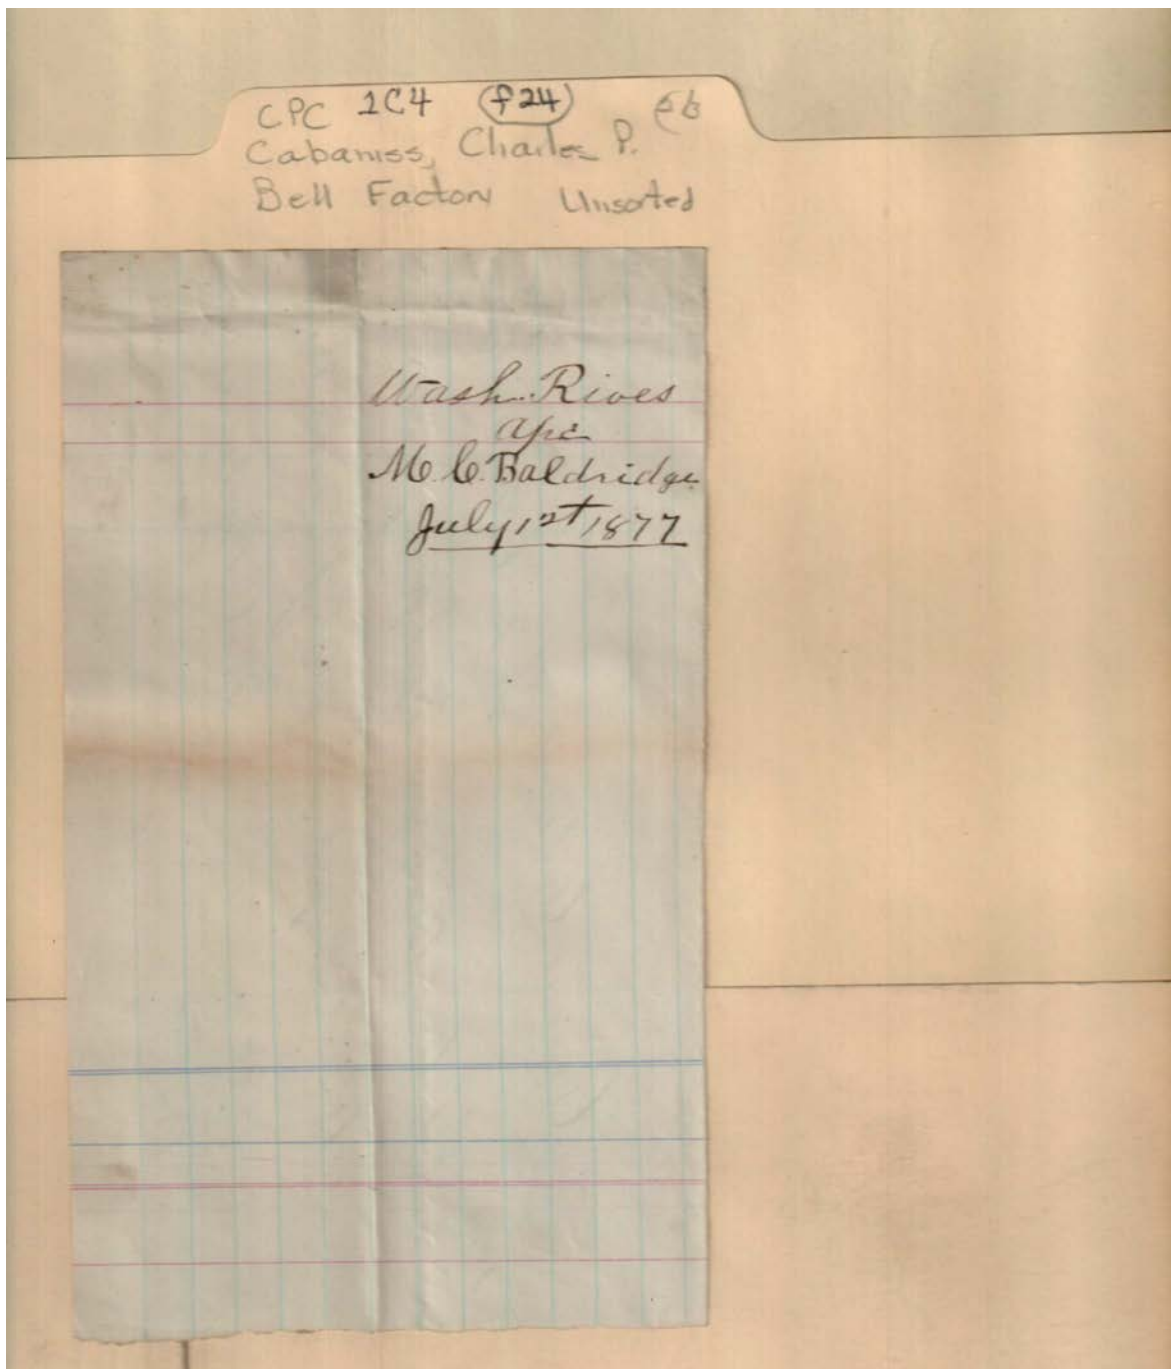 CPC 1C4 (f24)
Cabaniss, Charles P.
Bell Factory Unsorted
Wash Rives
M. C. Baldridge
July 1st 1877